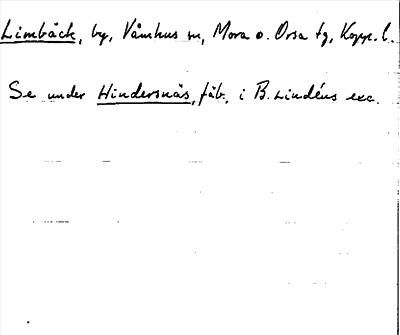 Limbäck, by, Våmhus sn, Mora o. Orsa tg, Kopp. l.
Se under Hindersnäs, fäb., i B. Lindéns exc.